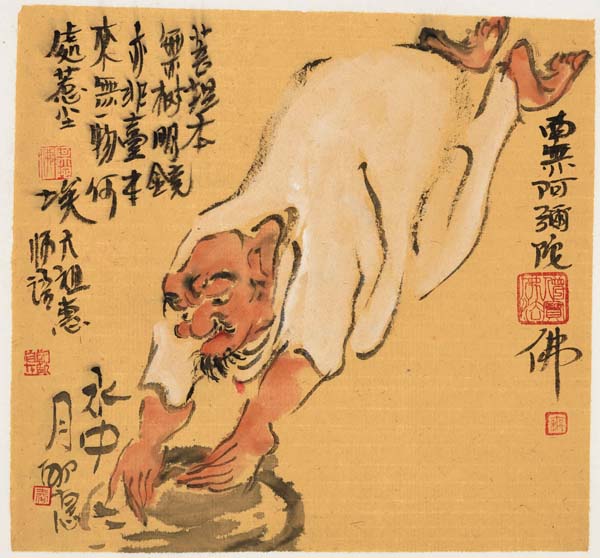 南無阿彌陀
佛
菩提本
無树明鏡
亦非臺本
來無一物何
處惹尘
埃
六祖惠
師語
水中
月